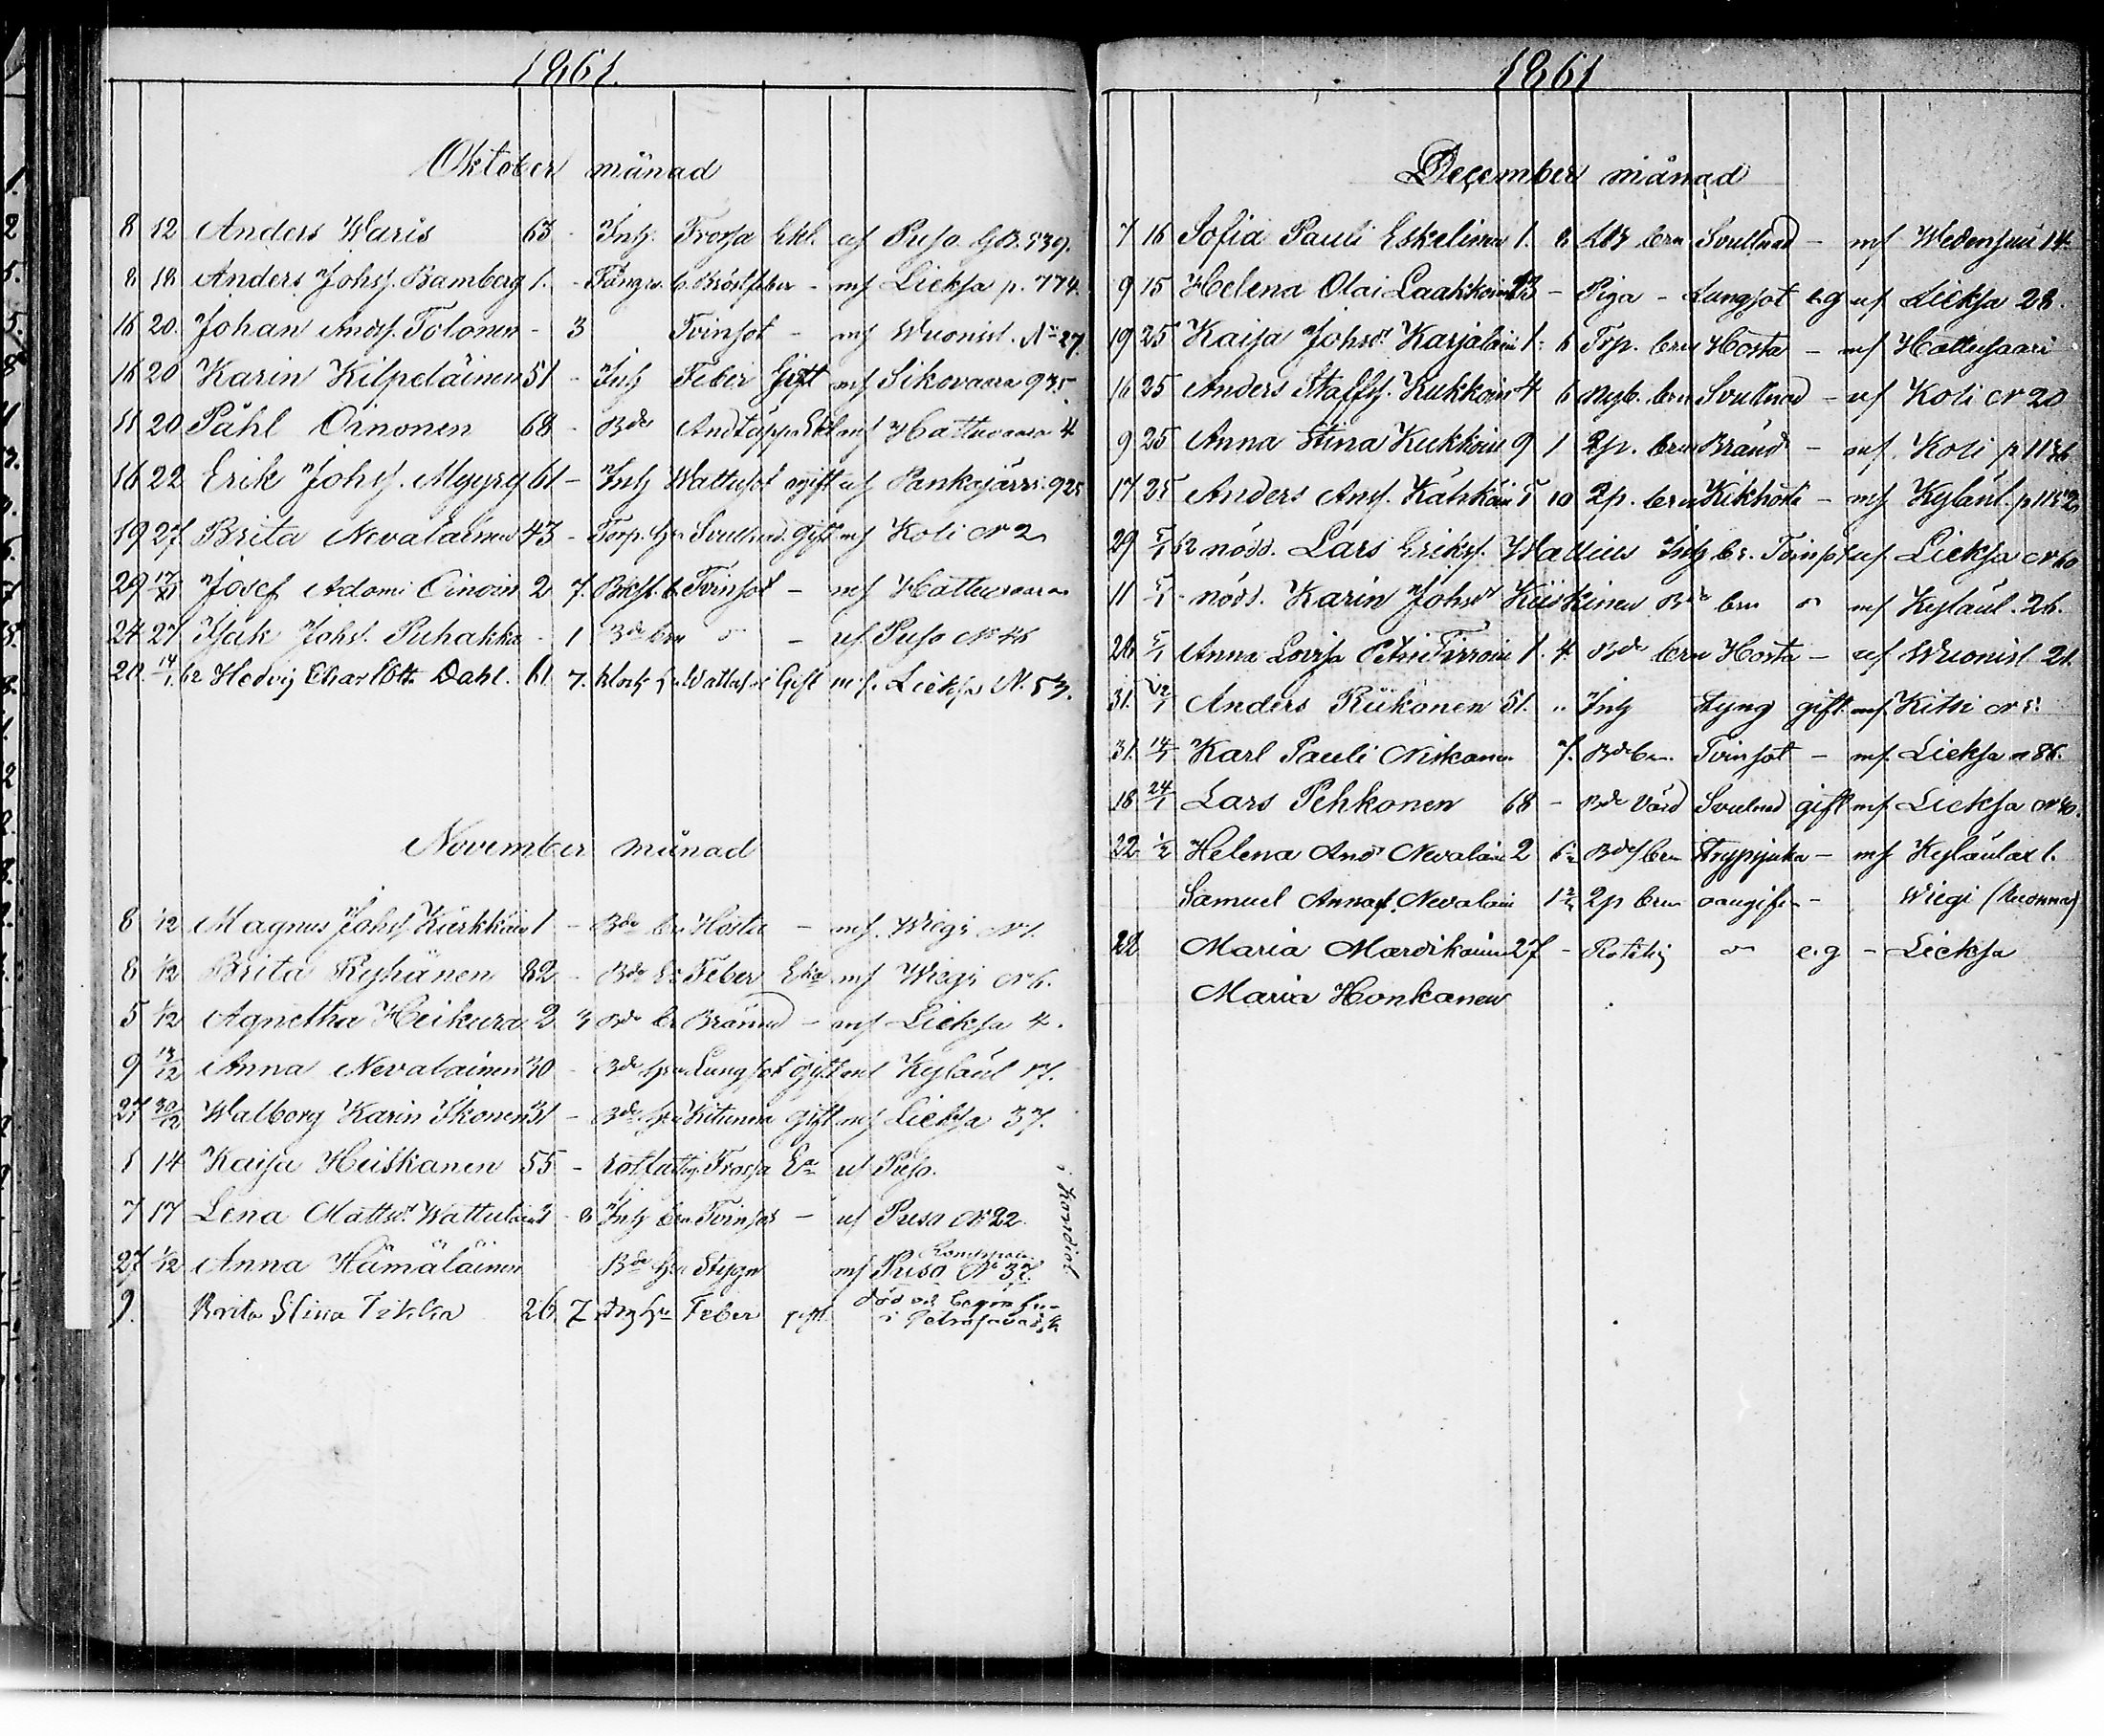 1861.
Oktober månad
8 12 Anders Waris 63 - Inh. Frossa Ekl. mf Puso
8 18 Anders Johsf. Bamberg 1. - b. Bröstfeber - mf Lieksa p. 774.
16 20 Johan Andsf. Tolonen - 3 Tvinsot - mf Wuonisl. No 27.
16 20 Karin Kilpeläinen 51 - Inh Feber Gift mf Sikovaara 935
11 20 Påhl Oinonen 68 - Bde Andtäppa Ekl mf Hattuvaara 4
16 22 Erik Johsf. Myyry 61 - Inh Wattusot gift mf Pankajärvi 925
19 27 Brita Nevalainen 43 - Torp. hu Svullnad. Gift mf Koli No 2
29 Josef Adami Oinoin 2 7. Tvinsot - mf Hattuvaara
24 27 Isak Johsf. Puhakka - 1 Bde brn - mf Puso No 46
20. 14/1 62 Hedvig Charlotta Dahl. 61 7. Klock hu Wattusot Gift mf. Lieksa N. 53.
November månad
8 1/12 Magnus Johsf Kärkkäin 1 - Bde brn Hosta - mf. Wiegi No 1.
8 1/12 Brita Ryhänen 82 - Bde Feber Eka mf Wiegi No 6.
5 1/12 Agnetha Heikura 2 3 Bde br Bränd - mf Lieksa 4.
9 13/12 Anna Nevalainen 30 - Bde hu Lungsot Gift mf Kylänl 17.
27 30/12 Walborg Karin Ikonen 31 - Bde hu gift mf Lieksa 37.
1 14 Kaisa Heiskanen 55 - Rotfattig Frossa Ea mf Puso.
7 17 Lena Mattsdr Wattulain 3 - 8 Inh brn Tvinsot - mf Puso No 22
27 1/12 Anna Hämäläinen Bde hu Stygn mf Puso No 37.
9. Brita Stina Tikka 26 7 hu Feber gift död och begrafven i
1861
December månad
7 16 Sofia Pauli Eskelinen 1. 8 brn Svullnad - mf Wedensuu 14
9 15 Helena Olai Laakkoin 23 - Piga - Lungsot e.g mf Lieksa 28.
19 25 Kaisa Johsdr Karjalain 1. 6 Trp. brn Hosta - mf Hattusaari
16 25 Anders Staffsf. Kukkoin 4 6 Nyb. brn Svullnad - mf Koli No 20
9 25 Anna Stina Kukkoin 9 1 2p. brn Bränd - mf. Koli p 1136
17 25 Anders Andsf. Kähköin 5 10 2p. brn Kikhosta - mf Kylänl. p
29 5/1 62 nödd. Lars Eriksf. Wallius Inh br. Tvinsot mf Lieksa No 60
11 5/1 - nödd. Karin Johsdr Kiiskinen Bde brn mf Kylänl. 26.
26 5/1 Anna Lovisa Petri Pirroin 1. 4. Bde brn Hosta - mf Wuonisl 21.
31. 12/1 Anders Riikonen 51. " Inh Styng gift mf. Kitsi No
31. 14/1 Karl Pauli Niskanen 7. Bde brn. Tvinsot - mf. Lieksa 86.
18 24/1 Lars Pehkonen 68 - Bde Värd Svullnad gift mf Lieksa No 40.
22 1/2 Helena Andr Nevalain 2 brn Strypsjuka - mf Kylänlax 1.
Samuel Nevalain 2p brn oangifven - Wiegi
22 Maria Mardikainen 27 - Rotehj e.g - Lieksa
Maria Honkanen